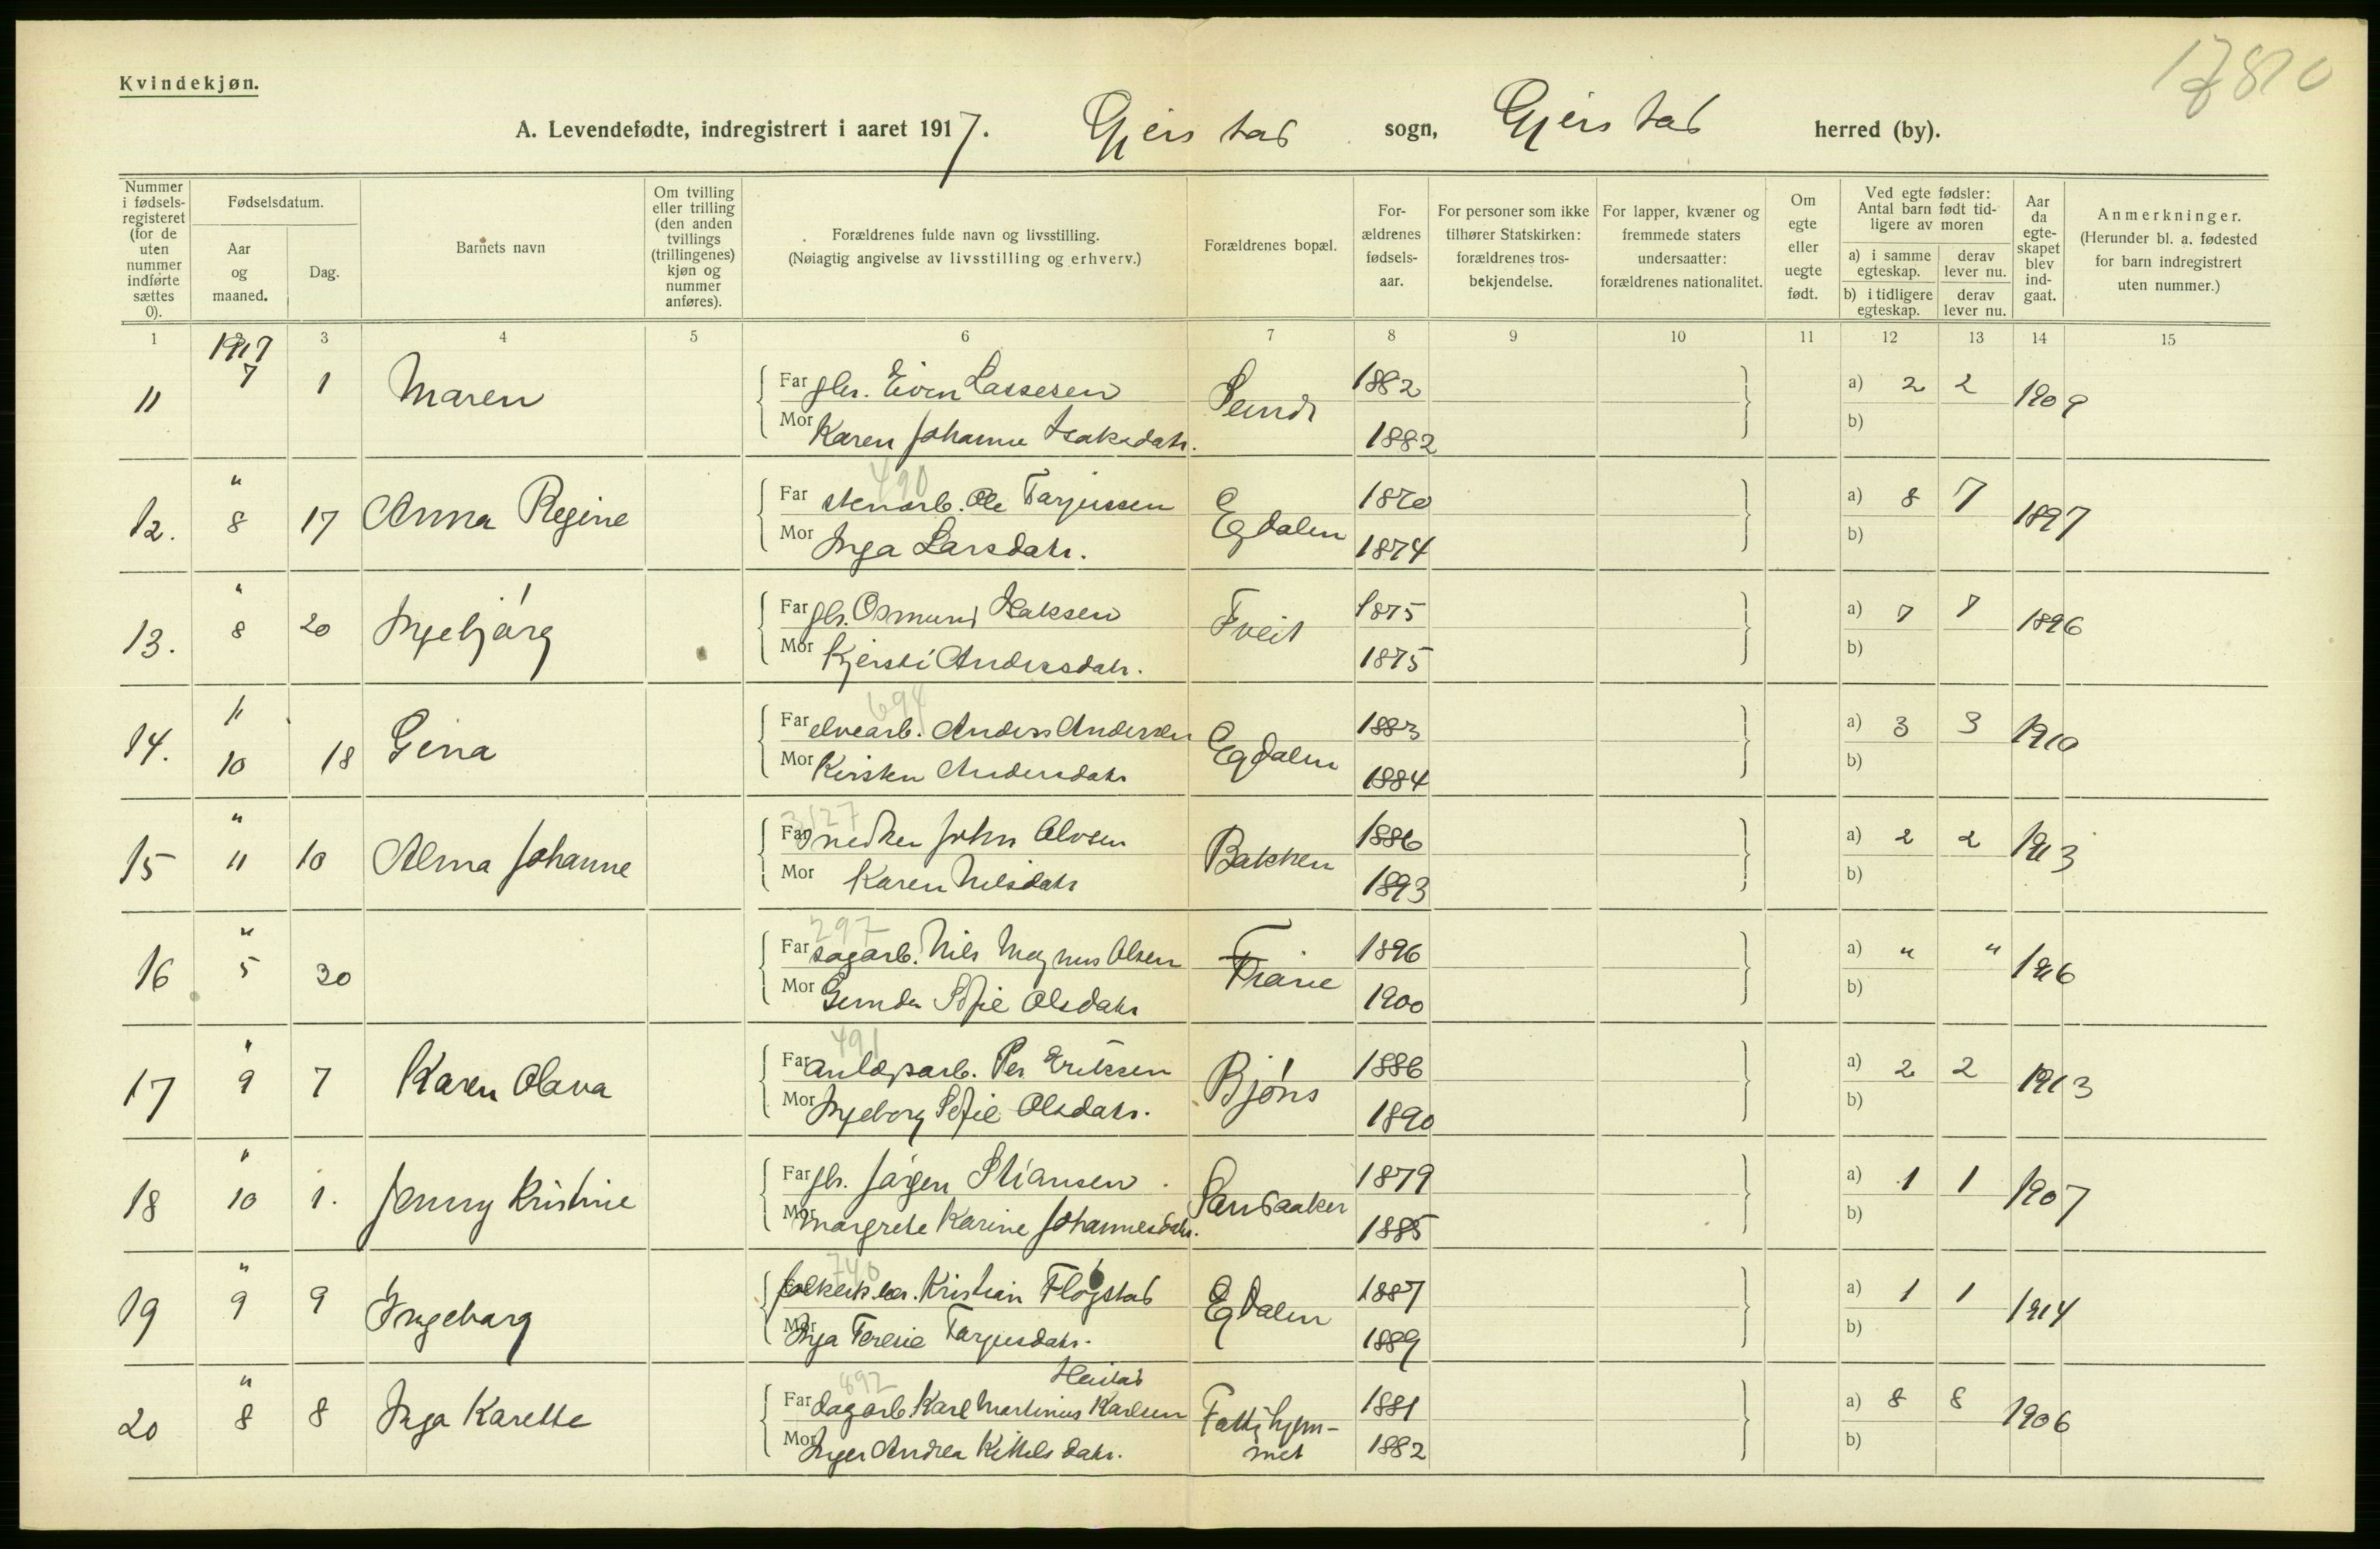 17810
Kvindekjøn.
A. Levendefødte, indregistrert i aaret 1917. Gjerstad sogn, Gjerstad herred (by).
Nummer i fødselsregisteret (for de uten nummer indførte sættes 0).
Fødselsdatum.
Aar og maaned.
Dag.
Barnets navn
Om tvilling eller trilling (den anden tvillings (trillingenes) kjøn og nummer anføres).
Forældrenes fulde navn og livsstilling.
(Nøiagtig angivelse av livsstilling og erhverv.)
Forældrenes bopæl.
For-ældrenes fødsels-aar.
For personer som ikke tilhører Statskirken: forældrenes tros-bekjendelse.
For lapper, kvæner og fremmede staters undersaatter: forældrenes nationalitet.
Om egte eller uegte født.
Ved egte fødsler: Antal barn født tid-ligere av moren
a) i samme egteskap.
derav lever nu.
b) i tidligere egteskap.
derav lever nu.
Aar da egte-skapet blev ind-gaat.
Anmerkninger.
(Herunder bl. a. fødested for barn indregistrert uten nummer.)
1 3 4 5 6 7 8 9 10 11 12 13 14 15
1917
11 7 1 Maren Far gbr. Even Lassesen 1882 a) 2 2 1909
Mor Karen Johanne Isaksdatr. 1882 b)
490
12. " 8 17 Anna Regine Far stenarb. Ole Tarjussen Egdalen 1870 a) 8 7 1897
Mor Inga Larsdatr. 1874 b)
13. " 8 20 Ingebjørg Far gbr. Osmund Isaksen Tveit 1875 a) 7 7 1896
Mor Kjersti Andersdatr. 1875 b)
694
14. " 10 18 Gina Far elvearb. Anders Andersen Egdalen 1883 a) 3 3 1910
Mor Kirsten Andersdatr 1884 b)
3127
15 " 11 10 Alma Johanne Far snedker John Olvsen Bakken 1886 a) 2 2 1913
Mor Karen Nilsdatr 1893 b)
297
16 " 5 30 Far sagarb. Nils Magnus Olsen 1896 a) " " 1916
Mor Gunda Sofie Olsdatr 1900 b)
491
17 " 9 7 Karen Olava Far anlægsarb. Per Eriksen Bjøns 1886 a) 2 2 1913
Mor Ingeborg Sofie Olsdatr. 1890 b)
18 " 10 1. Jenny Kristine Far gbr. Jørgen Stiansen Sandaaker 1879 a) 1 1 1907
Mor Margrete Karine Johannesdatr. 1885 b)
740
19 " 9 9 Ingeborg Kristian Fløgstad Egdalen 1887 a) 1 1 1914
Mor Inga Teresie Tarjusdatr. 1889 b)
892
20 " 8 8 Inga Karette Far dagarb Karl Martinus Karlsen Fattighjem-met 1881 a) 8 8 1906
Mor Inger Andrea Kittelsdatr. 1882 b)